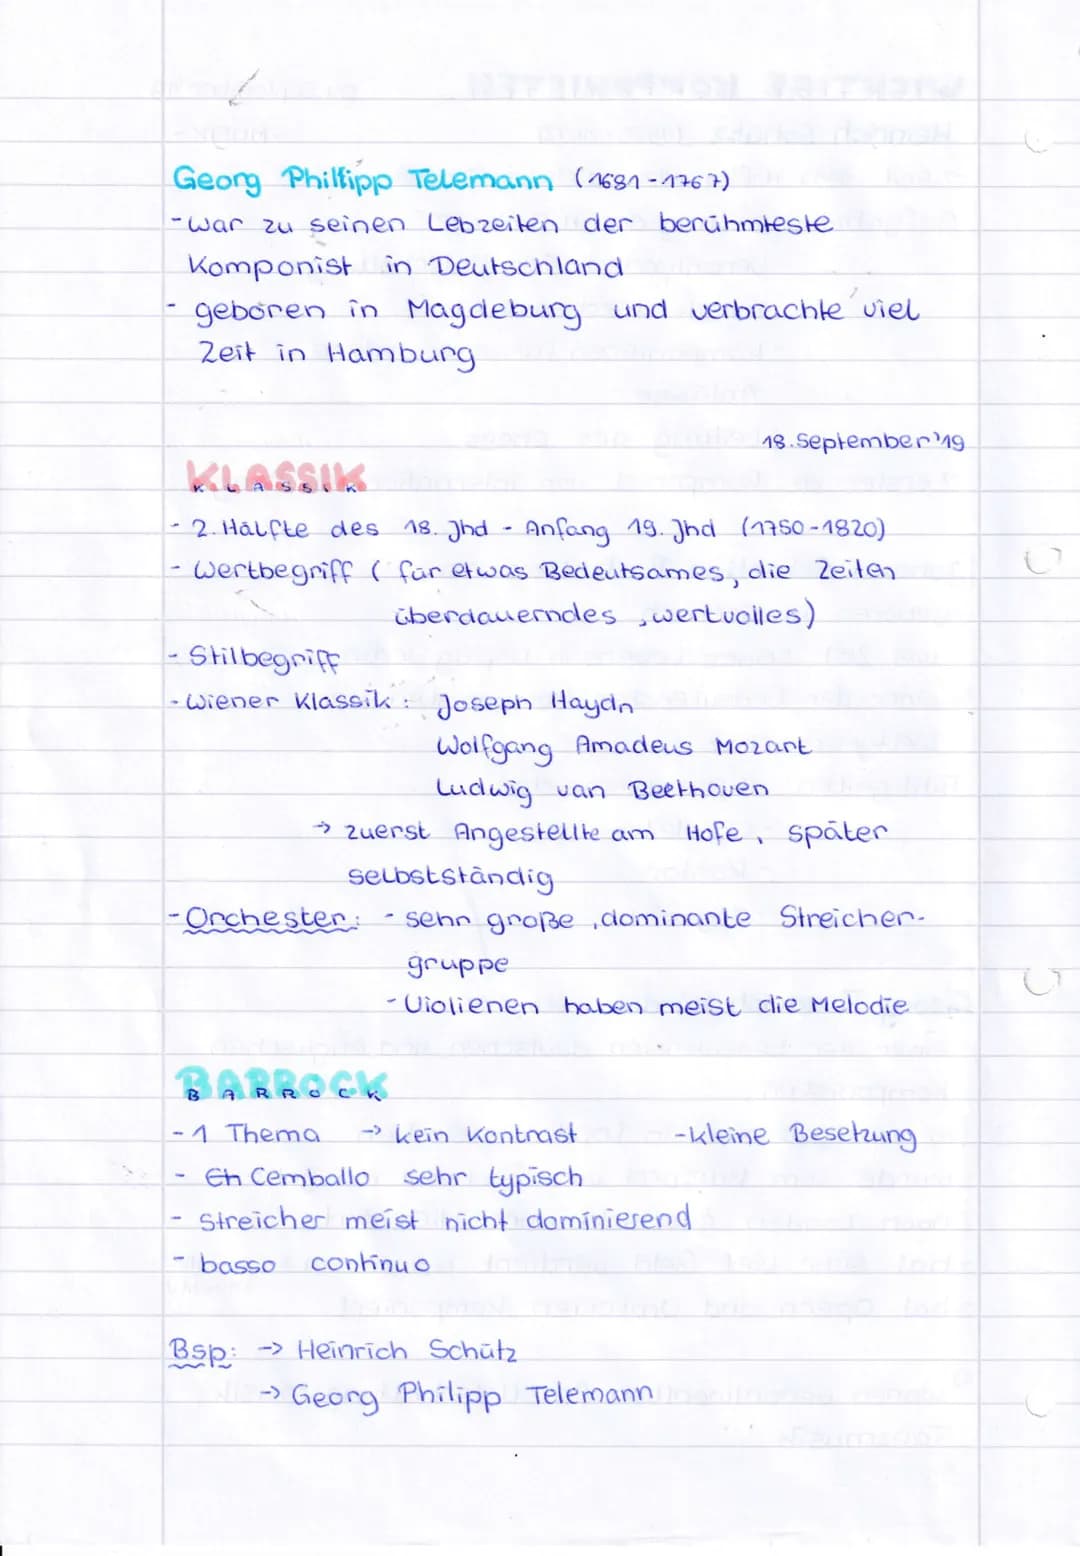 Georg Philfipp Telemann (1681-1767)
-war zu seinen Lebzeiten der berühmteste
Komponist in Deutschland
- geboren in Magdeburg und verbrachte viel
Zeit in Hamburg
18.September'19
KLASSIK
KLASSIK
- 2. Hälfte des 18. Jhd - Anfang 19. Jhd (1750-1820)
- Wertbegriff ( für etwas Bedeutsames, die Zeiten
überdauerndes, wertvolles)
- Stilbegriff
- Wiener Klassik: Joseph Haydn
Wolfgang Amadeus Mozart
Ludwig van Beethoven
→ zuerst Angestellte am Hofe, später
selbstständig
-Orchester: - sehr große, dominante Streicher-
gruppe
- Violienen haben meist die Melodie
BARROCK
BARROCK
- 1 Thema → kein Kontrast -kleine Besetzung
- Cemballo sehr typisch
- Streicher meist nicht dominierend
- basso continuo
Bsp: → Heinrich Schütz
→ Georg Philipp Telemann